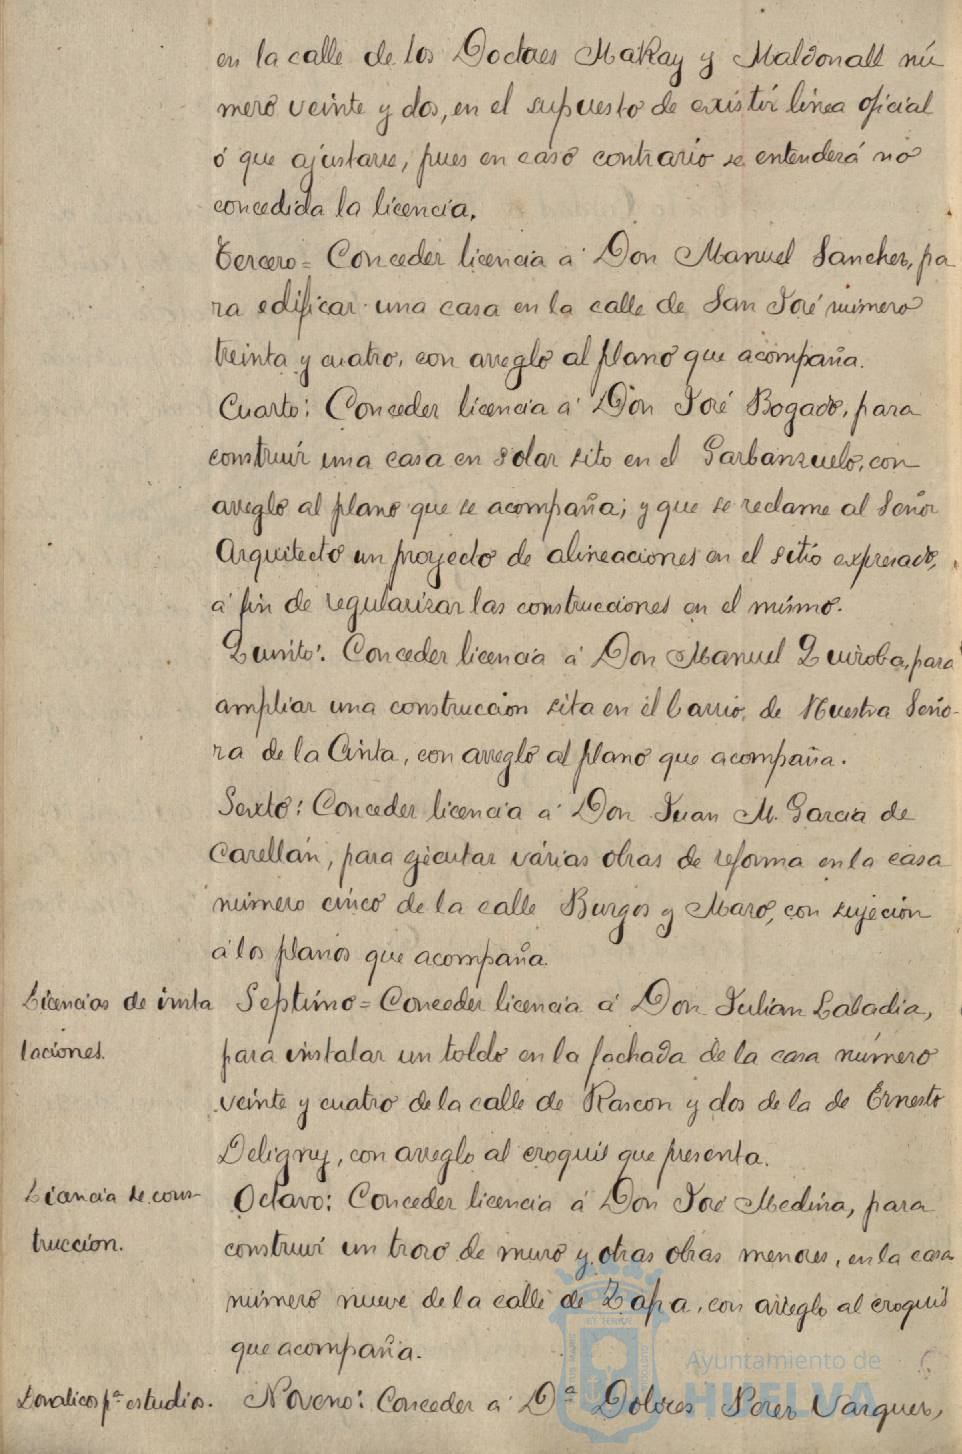 en la calle de los Doctores MaKay y Maldonall nú
mero veinte y dos, en el supuesto de existir línea oficial
ó que ajustarse, pues en caso contrario se entenderá no
concedida la licencia.
Tercero= Conceder licencia á Don Manuel Sanchez, pa
ra edificar una casa en la calle de San José número
treinta y cuatro, con arreglo al plano que acompaña.
Cuarto: Conceder licencia á Don José Bogado, para
construir una casa en solar sito en el Garbanzuelo, con
arreglo al plano que se acompaña; y que se reclame al Señor
Arquitecto un proyecto de alineaciones en el sitio expresado,
á fin de regularizar las construcciones en el mismo.
Quinto: Conceder licencia á Don Manuel Quiroba, para
ampliar una construccion sita en el barrio de Nuestra Seño-
ra de la Cinta, con arreglo al plano que acompaña.
Sexto: Conceder licencia á Don Juan M. Garcia de
Carellán, para ejecutar várias obras de reforma en la casa
número cinco de la calle Burgos y Maro, con sujecion
á los planos que acompaña.
Licencias de insta
laciones.
Septimo= Conceder licencia á Don Julian Labadia,
para instalar un toldo en la fachada de la casa número
veinte y cuatro de la calle de Rascon y dos de la de Ernesto
Deligny, con arreglo al croquis que presenta.
Licencia de cons-
truccion.
Octavo: Conceder licencia á Don José Medina, para
construir un trozo de muro y otras obras menores, en la casa
número nueve de la calle de Zafa, con arreglo al croquis
que acompaña.
Donaticos pª estudios.
Noveno: Conceder á Dª Dolores Perez Vazquez,
Ayuntamiento de
HUELVA